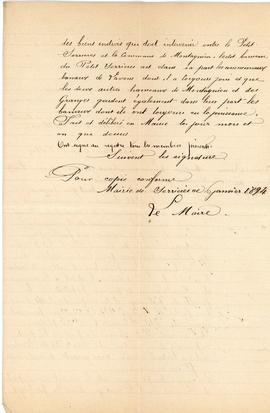 des biens indivis que doit intervenir entre le Petit
Serrières et la Commune de Montagnieu, ledit hameau
du Petit Serrières ait dans sa part les
hameau de dont il a toujours joui et que
les deux autres hameaux de Montagnieu et des
Granges gardent également dans leur part les
dont ils ont toujours eu la jouissance.
Fait et délibéré en Mairie les jour mois et
an que dessus
Ont signé au registre tous les membres présents
Suivent les signatures
Pour copie conforme
Mairie de Serrières Janvier 1894
Le Maire.